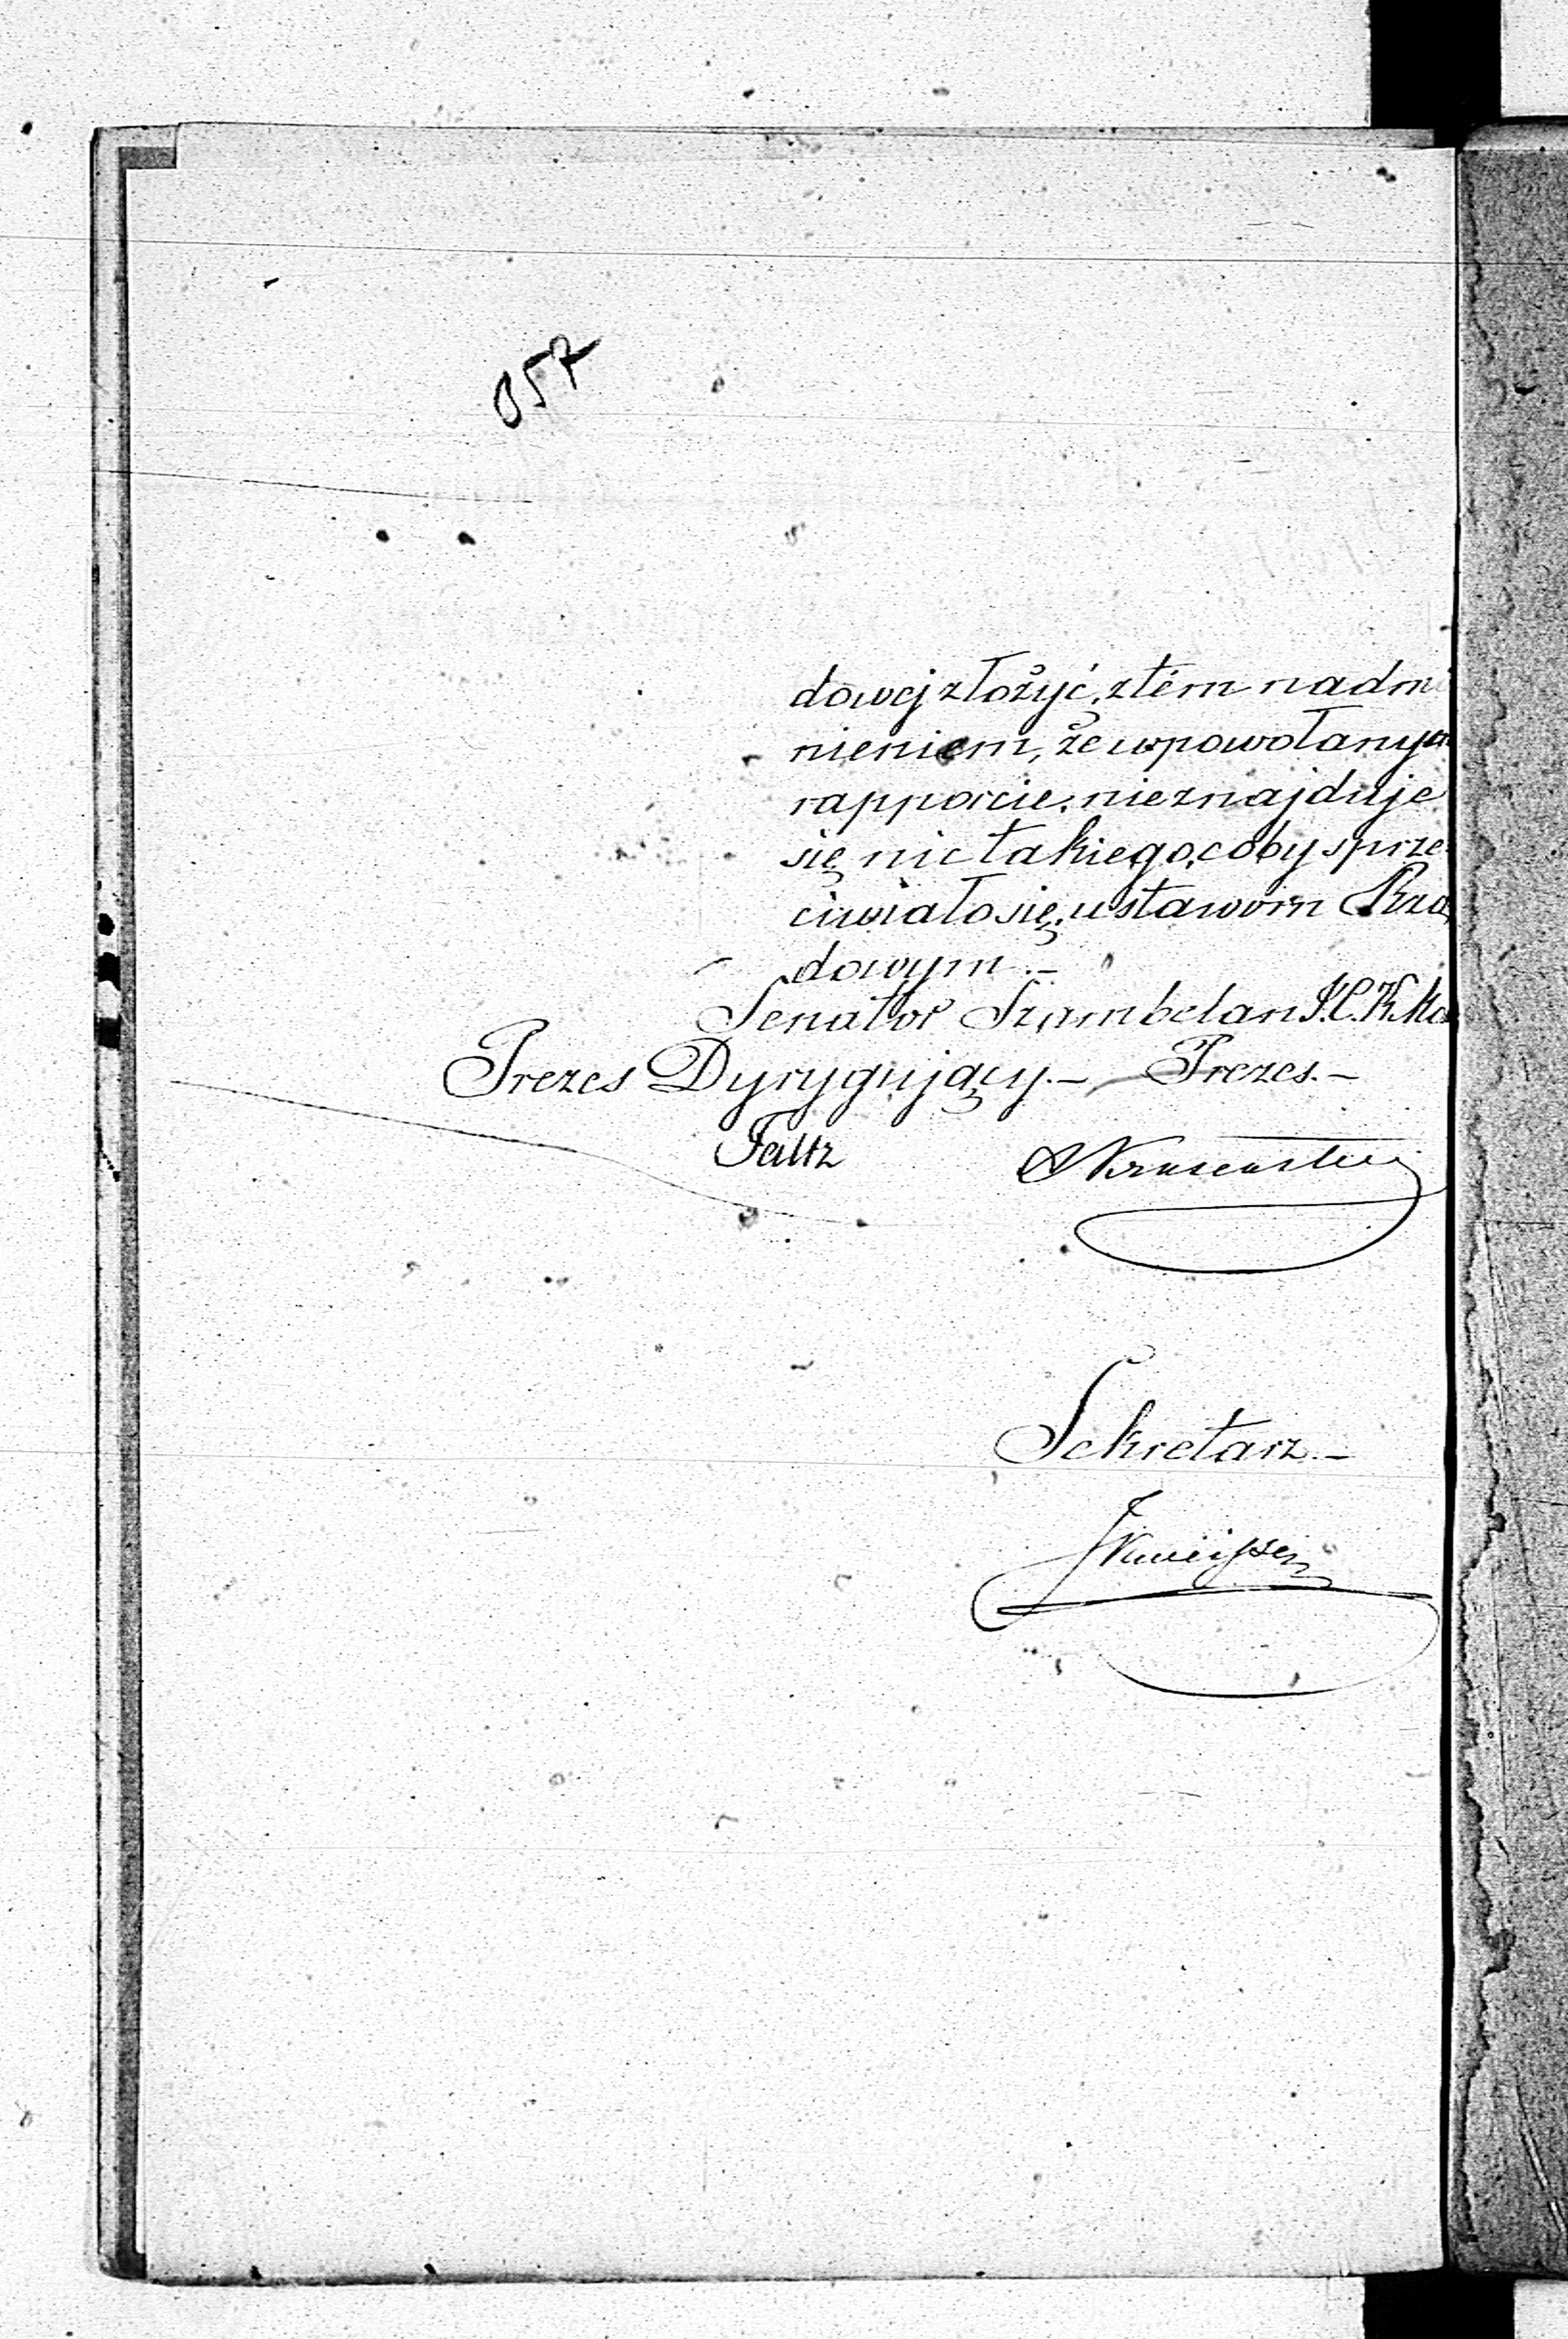 057
dowej złożyć, z tém nadmi
nieniem, że w powołanym
rapporcie, nieznajduje
się nic takiego, coby sprze
ciwiało się, ustawom Rzą
dowym.–
Senator Szambelan J.C.K.Mo
Prezes Dyrygujący.– Prezes.–
Faltz
Sekretarz.–